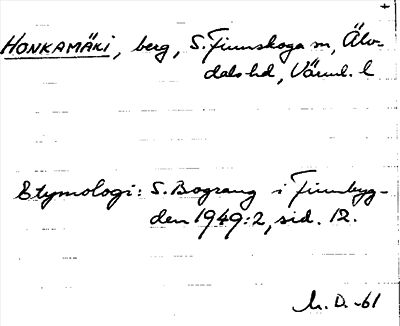 HONKAMÄKI, berg, S. Finnskoga sn, Älv-
dals hd, Värml. l
Etymologi: S. Bograng i Finnbyg-
den 1949:2, sid. 12.
M. D. -61